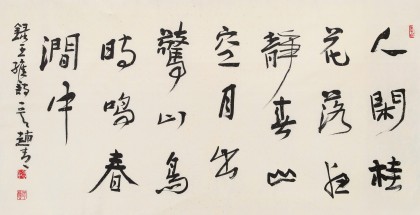 人閑桂
花落夜
靜春山
空月出
驚山鳥
時鳴春
澗中
錄王維詩 趙